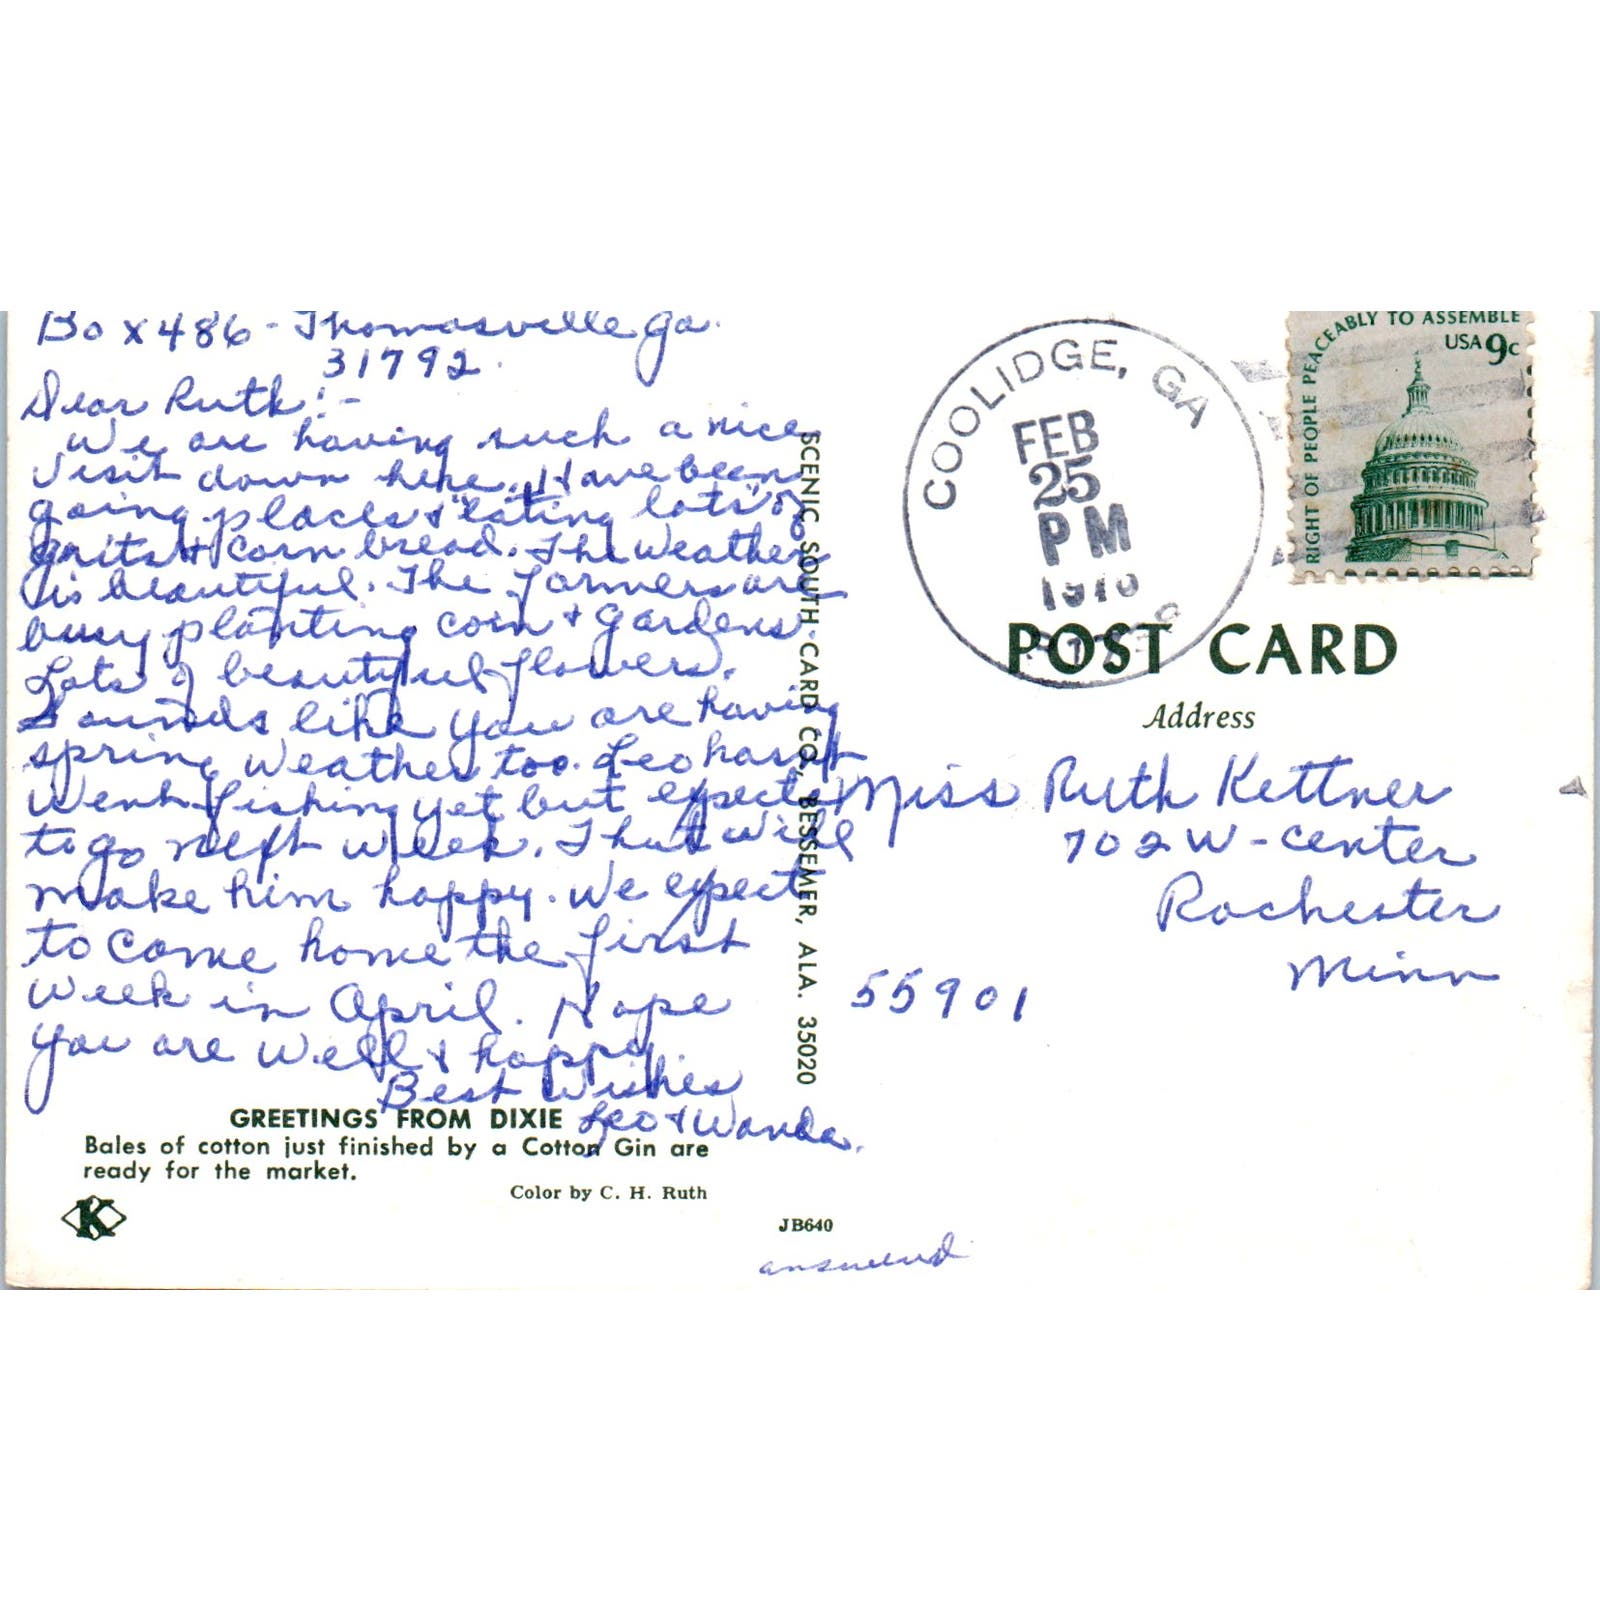 Box 486 - Thomasville Ga.
31792.
Dear Ruth:-
We are having such a nice
visit down here. Have been
going places & "eating lots" of
grits & corn bread. The weather
is beautiful. The farmers are
busy planting corn & gardens.
Lots of beautiful flowers.
Sounds like you are having
spring weather too. Leo hasn't
went fishing yet but expects
to go next week. That will
make him happy. We expect
to come home the first
week in April. Hope
you are well & happy.
Best Wishes
Leo & Wanda.
GREETINGS FROM DIXIE
Bales of cotton just finished by a Cotton Gin are
ready for the market.
Color by C. H. Ruth
K
JB640
answered
SCENIC SOUTH CARD CO., BESSEMER, ALA. 35020
COOLIDGE, GA
FEB
25
PM
RIGHT OF PEOPLE PEACEABLY TO ASSEMBLE
USA 9c
POST CARD
Address
Miss Ruth Kettner
702 W-Center
Rochester
Minn
55901